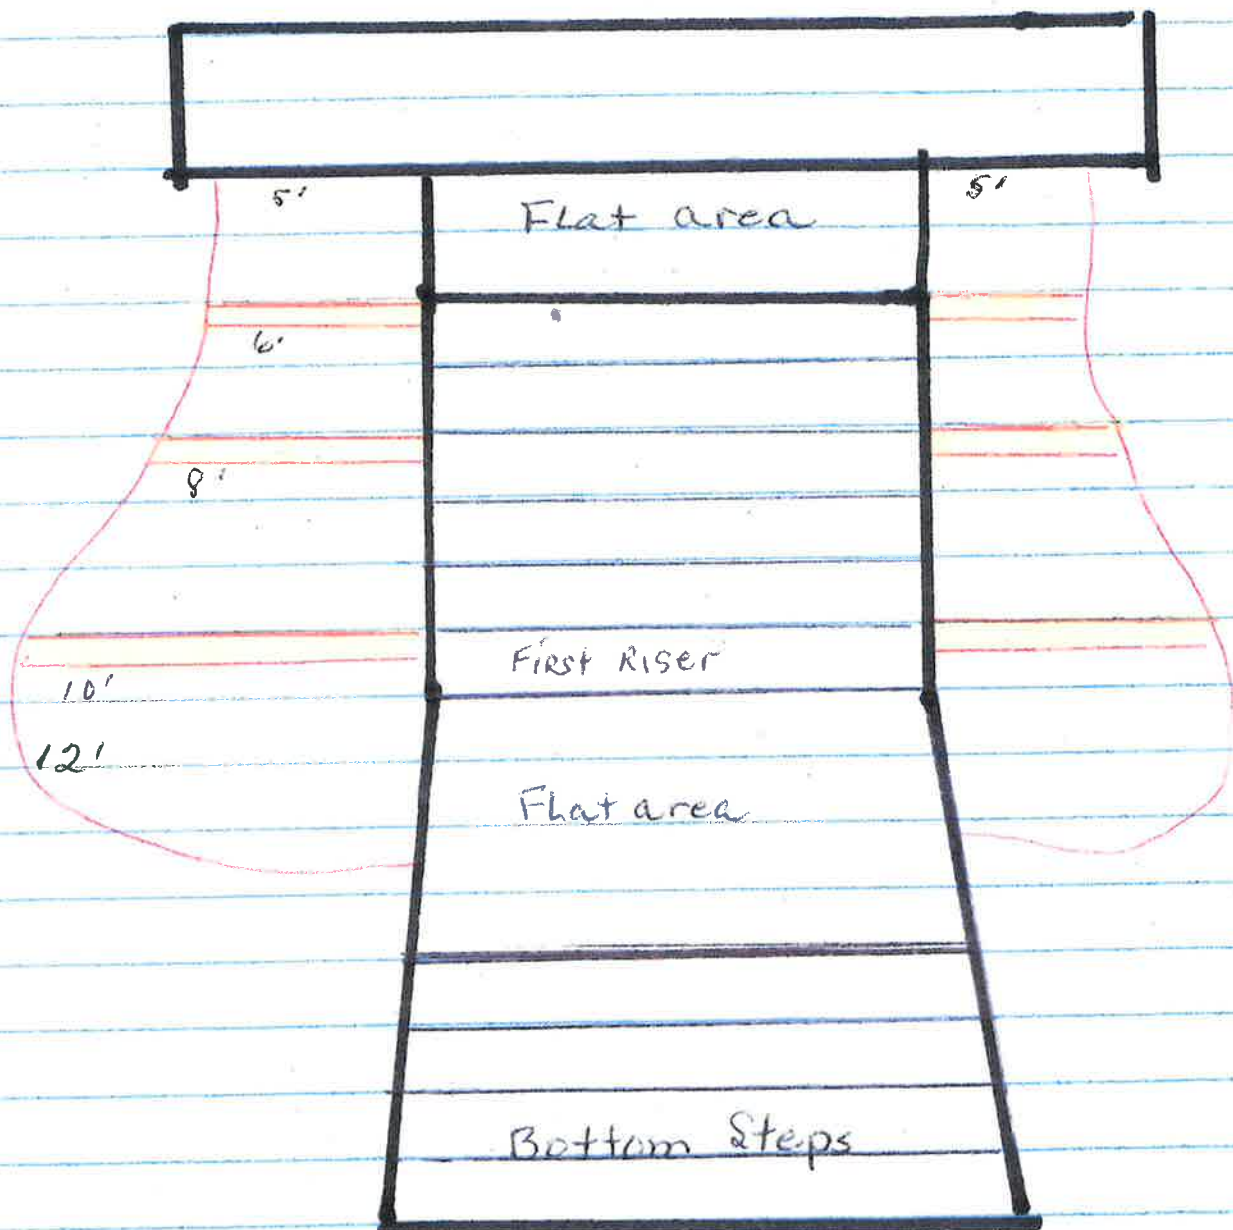 5'
5'
Flat area
6'
8'
First Riser
10'
12'
Flat area
Bottom Steps